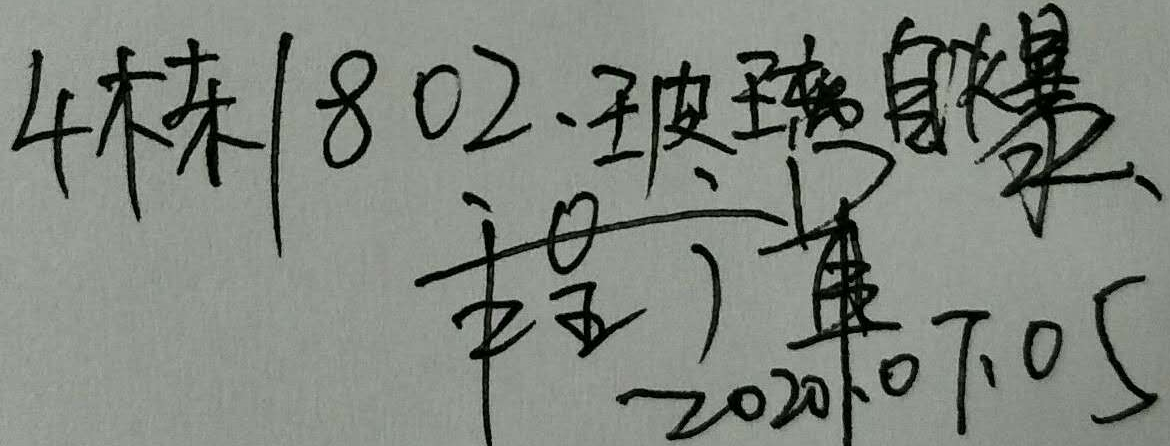 4栋1802.玻璃自爆、
2020.07.05